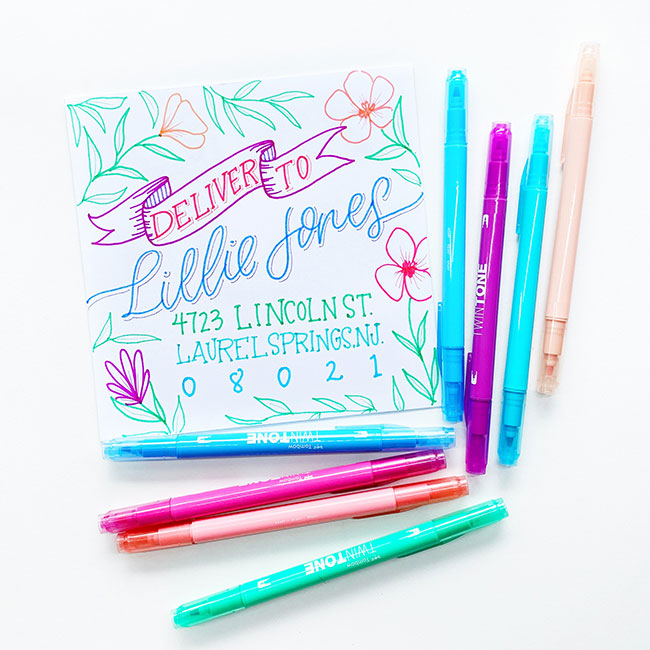 DELIVER TO
Lillie Jones
4723 LINCOLN ST.
LAUREL SPRINGS, NJ.
08021
TWINTONE
TWINTONE
Tombow
TWINTONE
Tombow